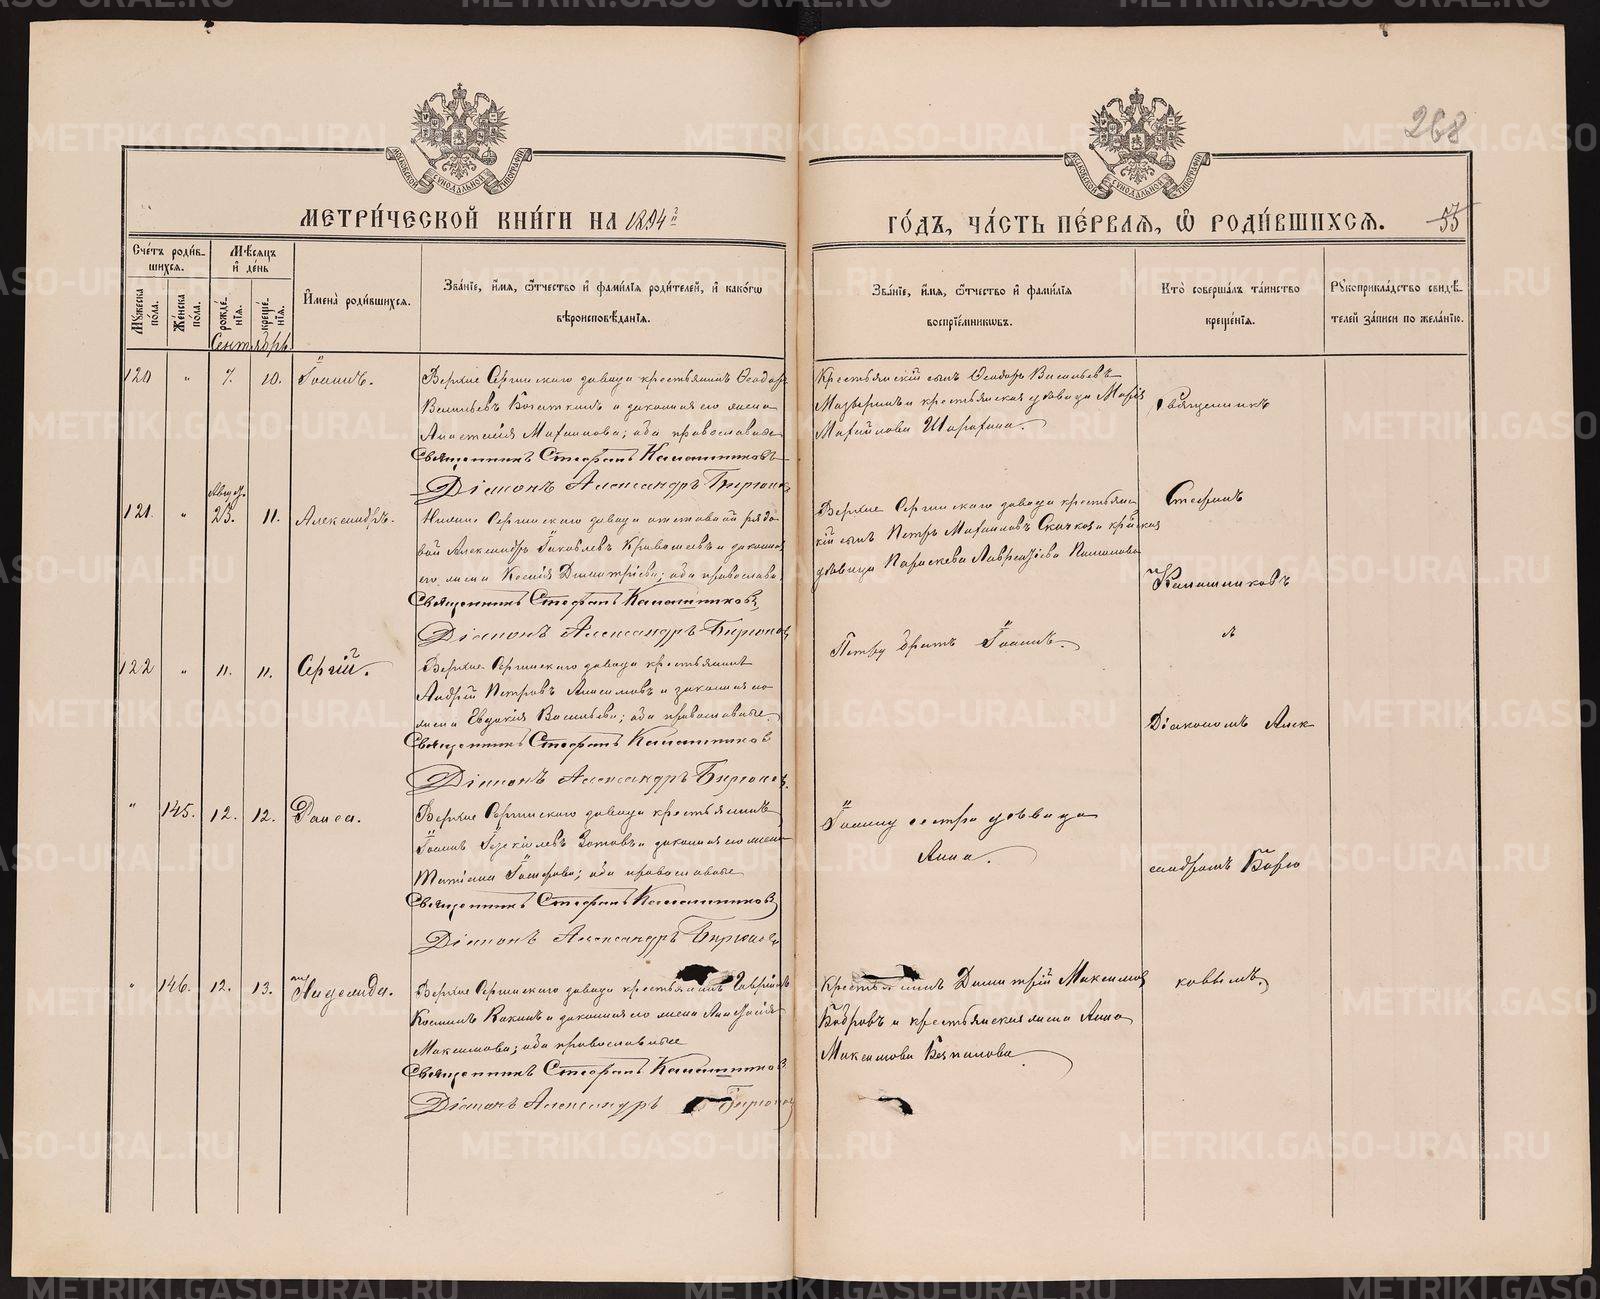 268
МЕТРИ́ЧЕСКОЙ КНИ́ГИ НА 1894 г.
ГО́ДЪ, ЧА́СТЬ ПЕ́РВАЯ, Ѡ РОДИ́ВШИХСЯ.
55
Сче́тъ роди́в-
шихся.
Мѣ́сяцъ
и де́нь
Му́жеска по́ла.
Же́нска по́ла.
рожде́нія.
креще́нія.
Имена̀ роди́вшихся.
Зва́ніе, и́мя, ѻ́тчество и фами́лія роди́телей, и како́гѡ
вѣроисповѣ́данія.
Зва́ніе, и́мя, ѻ́тчество и фами́лія
воспріе́мниковъ.
Кто̀ соверша́лъ та́инство
креще́нія.
Рукоприкла́дство свидѣ́-
телей за́писи по жела́нію.
Сентябрь
120 " 7. 10. Іоаннъ.
Верхне Сергинскаго завода крестьянинъ Ѳеодоръ
Васильевъ и законная его жена
Анастасія Михаилова; оба православные
Священникъ Стефанъ Калашниковъ
Діаконъ Александръ Бирюков
Крестьянскій сынъ Ѳеодоръ Васильевъ
и крестьянская дѣвица Марія
Михайлова
Священникъ
Август.
121. " 23. 11. Александръ.
Нижне Сергинскаго завода отставной рядо-
вой Александръ Іаковлевъ и законная
его жена Ксенія Димитріева; оба православн.
Священникъ Стефанъ Калашниковъ
Діаконъ Александръ Бирюков
Верхне Сергинскаго завода крестьянс
кій сынъ Петръ Михаиловъ и
дѣвица Параскева Лаврентіева
Стефанъ
Калашниковъ
122 " 11. 11. Сергій.
Верхне Сергинскаго завода крестьянинъ
Андрей Петровъ Анисимовъ и законная его
жена Евдокія Васильева; оба православные.
Священникъ Стефанъ Калашников
Діаконъ Александръ Бирюков
Петру братъ Іоаннъ.
съ
Діакономъ Алек
" 145. 12. 12. Раиса.
Верхне Сергинскаго завода крестьянинъ
Іоаннъ Іезекіилевъ Зотовъ и законная его жена
Татіана; оба православные
Священникъ Стефанъ Калашников
Діаконъ Александръ Бирюков
Іоанну сестра дѣвица
Анна.
сандромъ Бирю
" 146. 12. 13. Надежда.
Верхне Сергинскаго завода крестьянинъ Гавріилъ
Козминъ и законная его жена Анастасія
Максимова; оба православные
Священникъ Стефанъ Калашников
Діаконъ Александръ Бирюков
Крестьянинъ Димитрій Максимов
Бобровъ и крестьянская жена Анна
Максимова
ковымъ.
METRIKI.GASO-URAL.RU